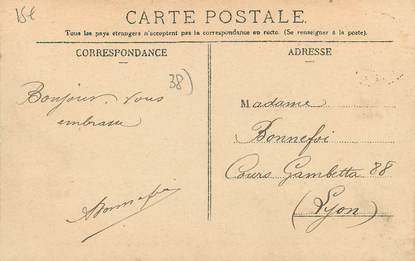 15€
CARTE POSTALE
Tous les pays étrangers n'acceptent pas la correspondance au recto. (Se renseigner à la poste).
CORRESPONDANCE
ADRESSE
38)
Bonjour. Vous
embrasse
Bonnefoi
Madame
Bonnefoi
Cours Gambetta 88
(Lyon)